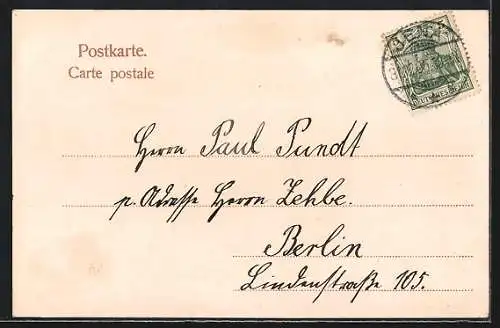 Postkarte.
Carte postale
DEUTSCHES REICH
Herrn Paul Pundt
p. Adresse Herrn Zehbe.
Berlin
Lindenstraße 105.